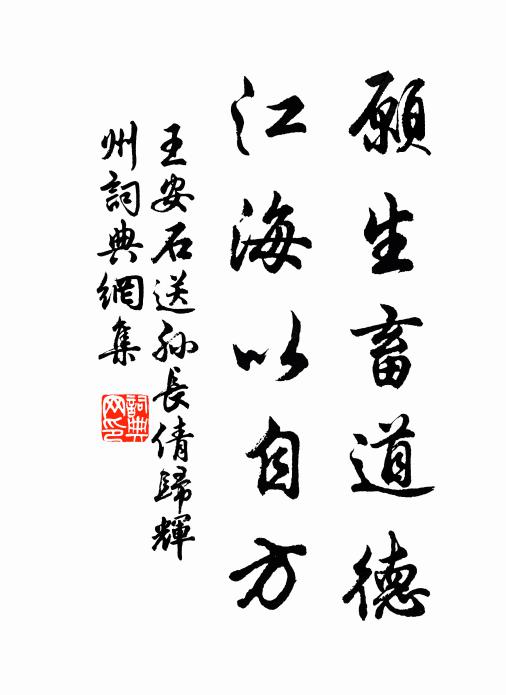 願生畜道德
江海以自方
王安石送孙長倩歸輝
州詞典網集
詞典網印